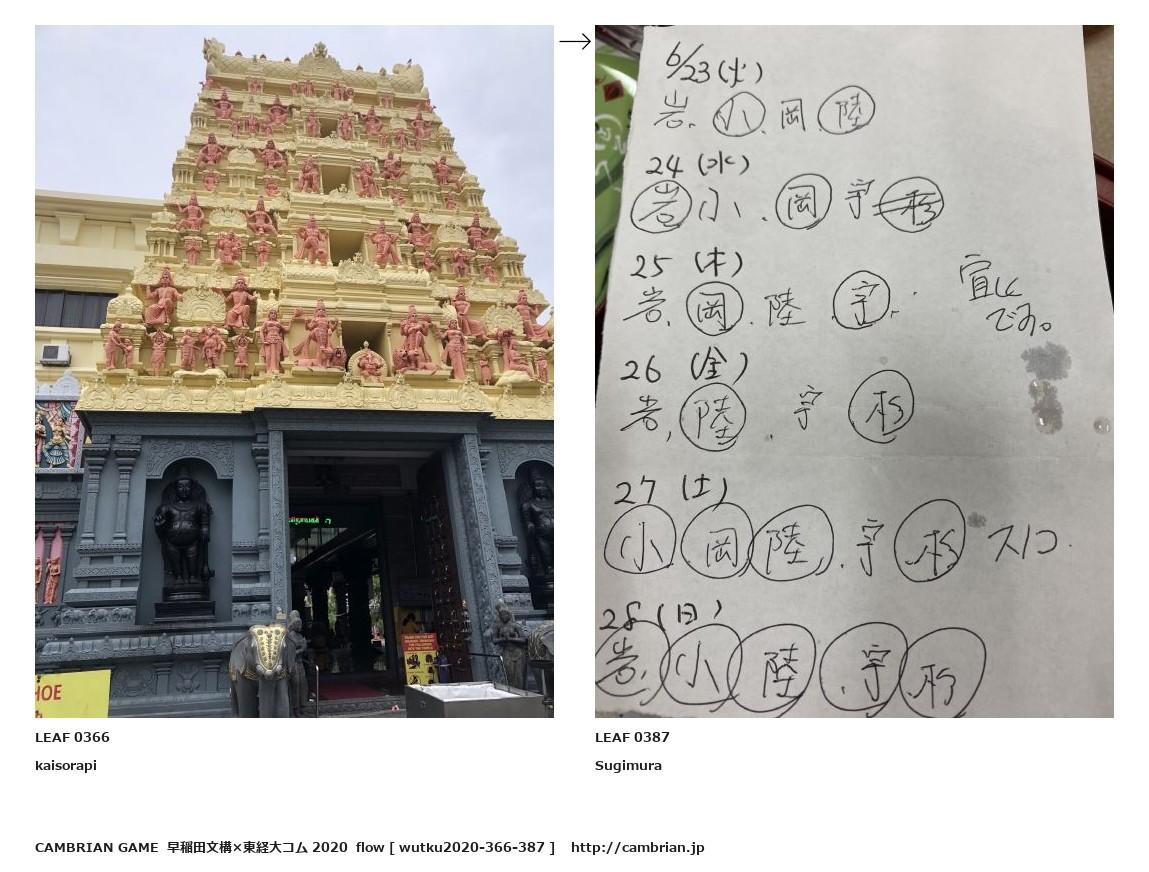 6/23(火)
岩、小、岡、陸
24(水)
岩 小、岡 宇
25 (木)
岩、岡、陸、宇、
宜しく
です。
26 (金)
岩、陸、宇 杉
27 (土)
小 岡 陸、宇 杉
28 (日)
岩、小、陸、宇、杉
HOE
LEAF 0366
kaisorapi
LEAF 0387
Sugimura
CAMBRIAN GAME 早稲田文構×東経大コム 2020 flow [ wutku2020-366-387 ] http://cambrian.jp